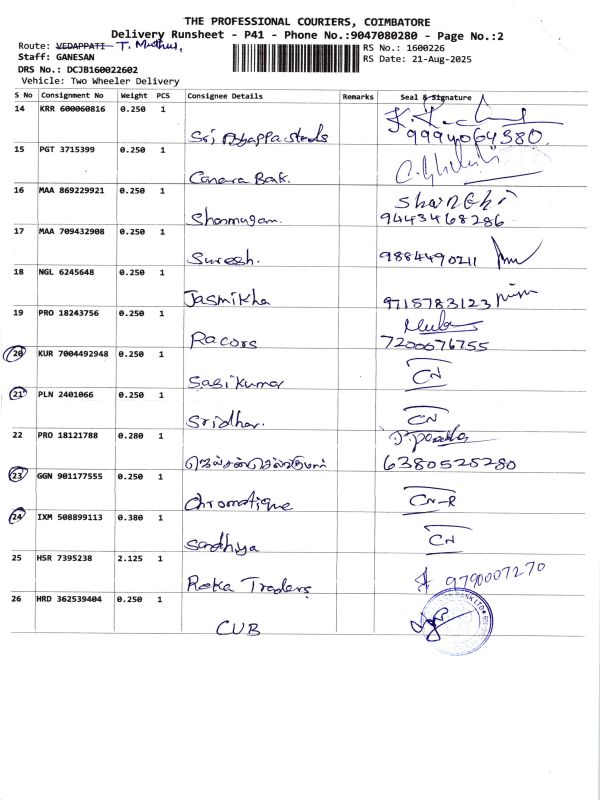 THE PROFESSIONAL COURIERS, COIMBATORE
Delivery Runsheet - P41 - Phone No.:9047080280 - Page No.:2
Route: VEDAPPATI T. Muthu,
RS No.: 1600226
Staff: GANESAN
RS Date: 21-Aug-2025
DRS No.: DCJB160022602
Vehicle: Two Wheeler Delivery
S No Consignment No Weight PCS Consignee Details Remarks Seal & Signature
14 KRR 600060816 0.250 1
Sri Ayyappa steels 9994064380.
15 PGT 3715399 0.250 1
Canara Bak.
16 MAA 869229921 0.250 1
Shanmugam. 9443468286
17 MAA 709432908 0.250 1
Suresh. 9884490211
18 NGL 6245648 0.250 1
Jasmikha 9715783123
19 PRO 18243756 0.250 1
Racors 7200676755
20 KUR 7004492948 0.250 1
Sasikumar CN
21 PLN 2401066 0.250 1
Sridhar. CN
22 PRO 18121788 0.280 1
6380525280
23 GGN 901177555 0.250 1
Chromatique CN-R
24 IXM 508899113 0.380 1
Sandhiya CN
25 HSR 7395238 2.125 1
Reeka Traders 9790007270
26 HRD 362539404 0.250 1
CUB